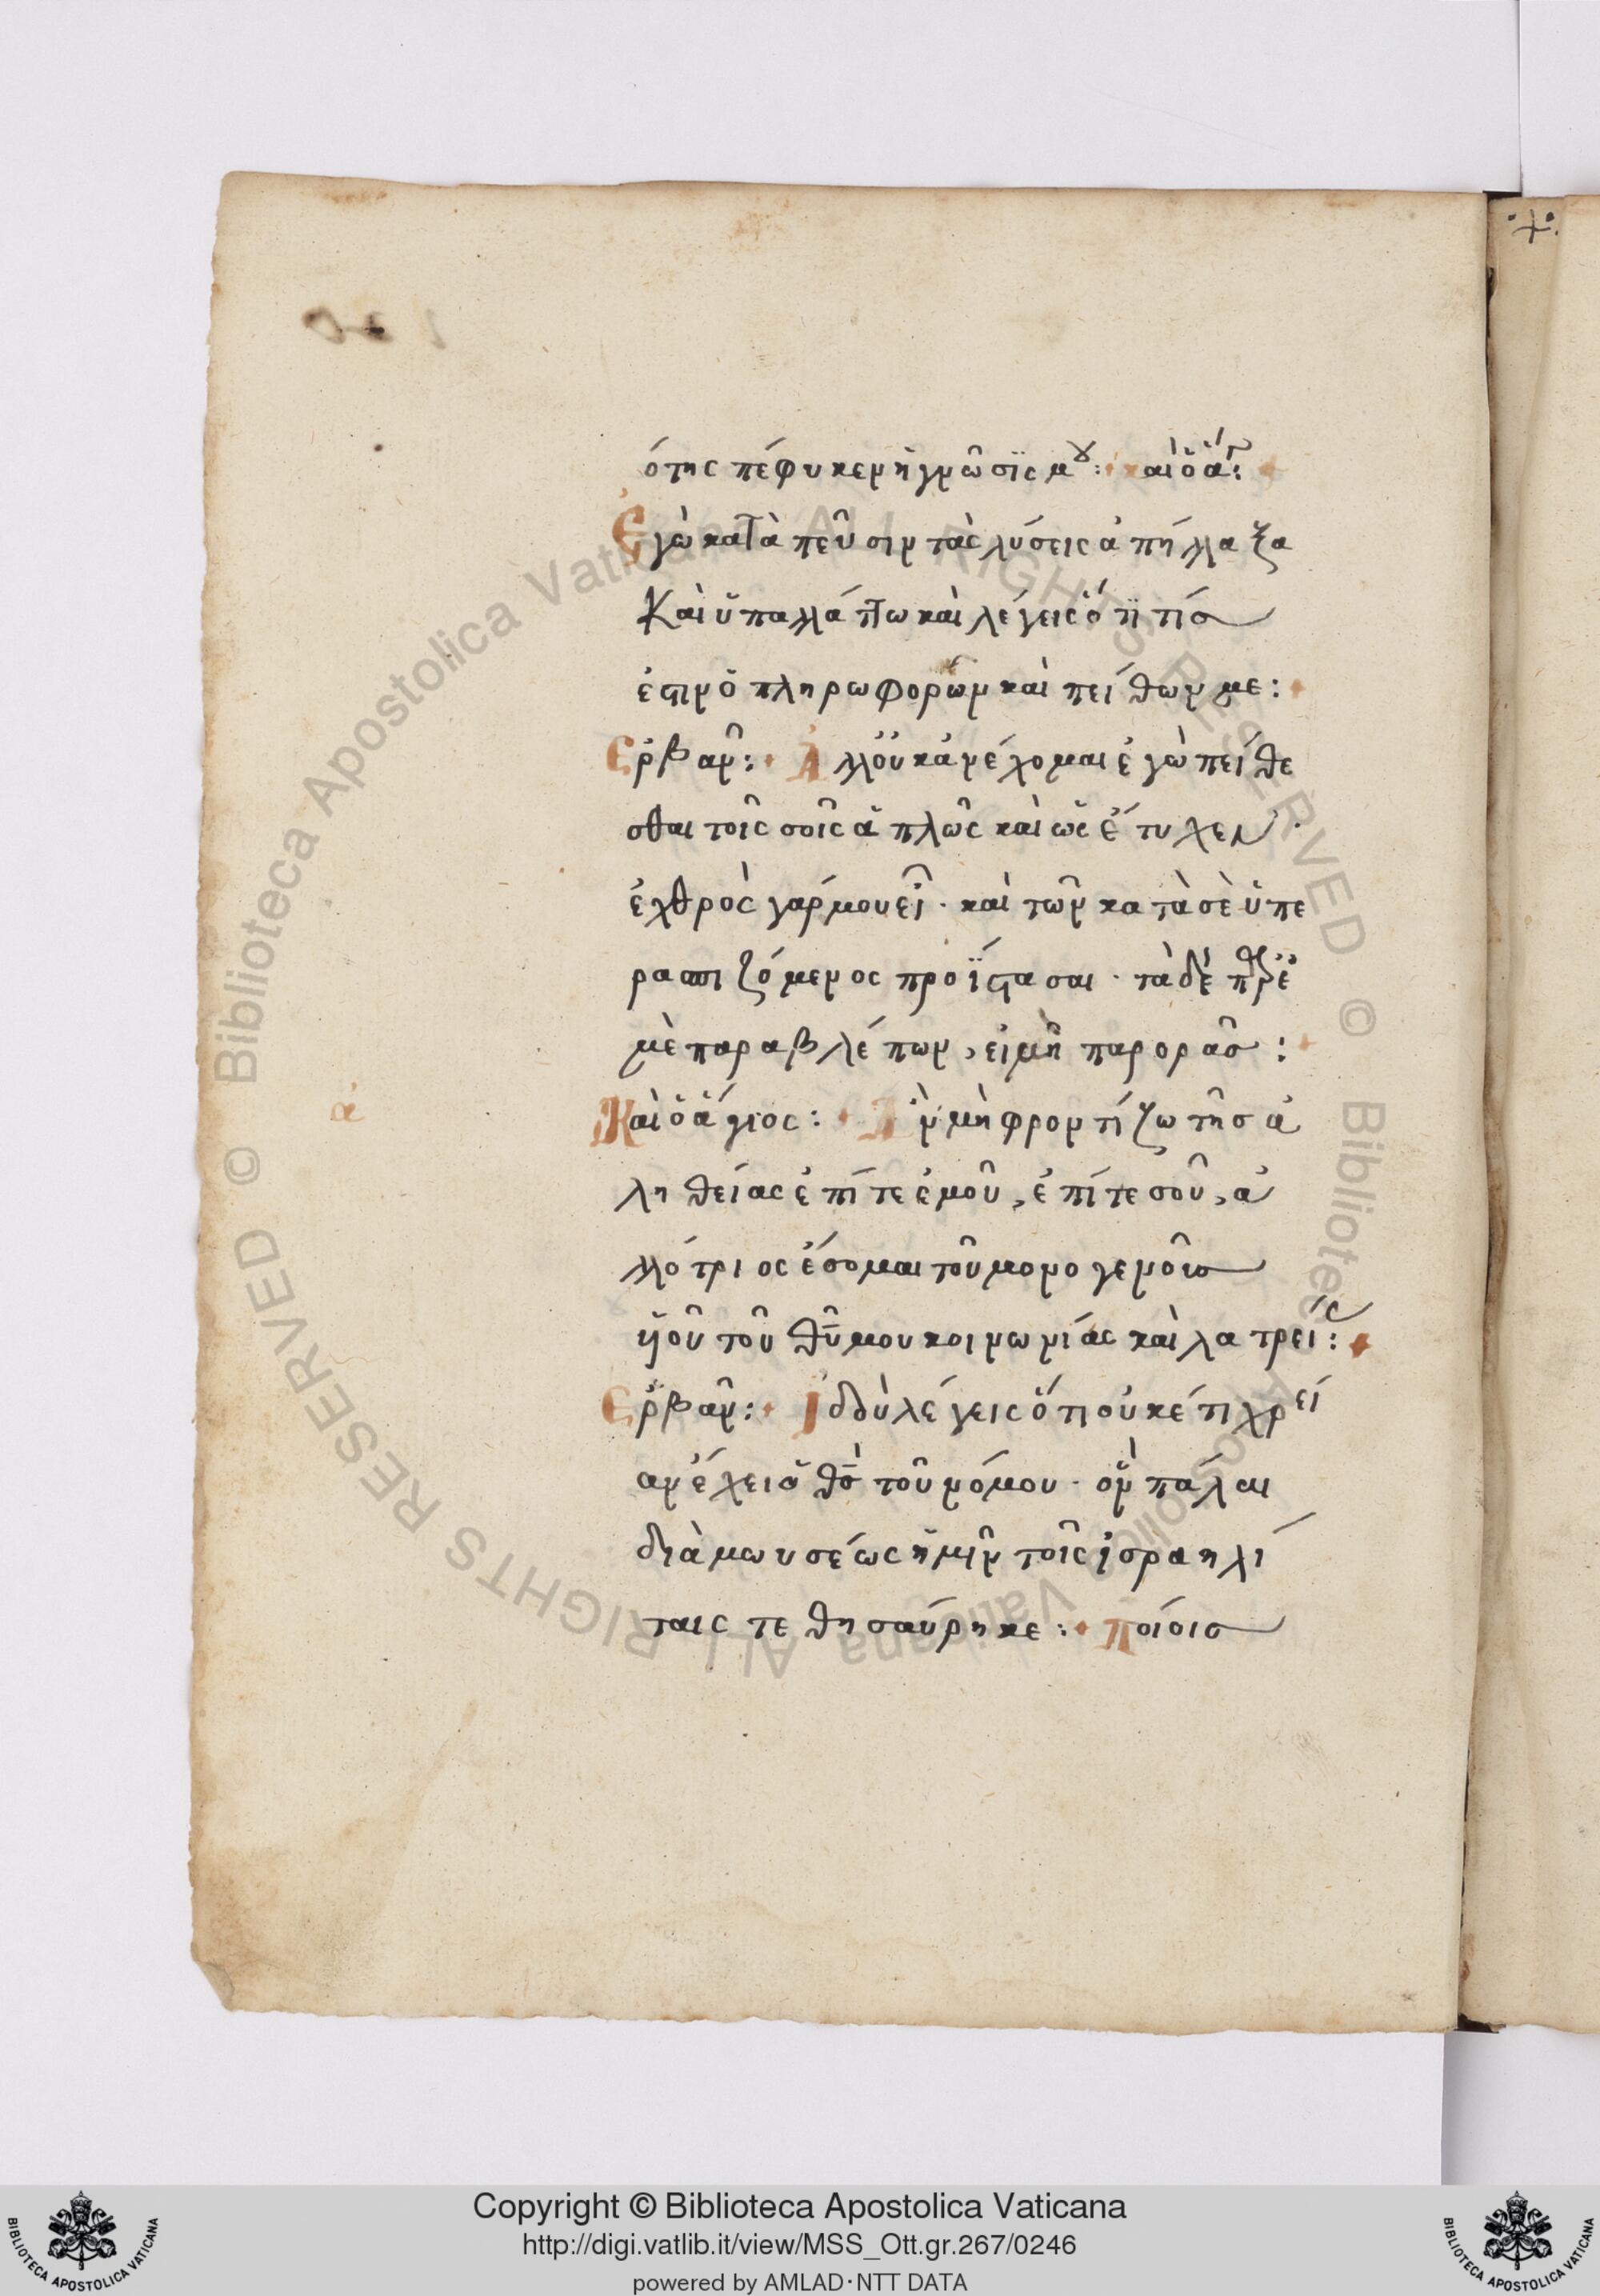 ότης πέφυκεν ἡ γνῶσϊς μου: καὶ ὁ ἅγ:
Ἐγὼ κατὰ πεῦσιν τὰς λύσεις ἀπήλλαξα
Καὶ ὑπαλλάττω καὶ λέγεις ὅτϊ τίσ
ἐστιν ὁ πληρωφορῶν καὶ πείθων με:
Ἑρβᾶν: Ἀλλ οὐκ ἀνέχομαι ἐγὼ πείθε
σθαι τοῖς σοῖς ἁπλῶς καὶ ὡς ἔτυχεν·
ἐχθρὸς γάρ μου εἶ· καὶ τῶν κατὰ σὲ ὑπε
ρασπιζόμενος προΐστασαι· τὰ δὲ πρὸς ἐ
μὲ παραβλέπων, εἰ μὴ παρορᾶσ:
ἀ
Καὶ ὁ ἅγιος: Ἂν μὴ φροντίζω τῆσ ἀ
ληθείας ἐπί τε ἐμοῦ, ἐπί τε σοῦ, ἀ
λλότριος ἔσομαι τοῦ μονογενοῦσ
ϋἱοῦ τοῦ θῦ μου κοινωνίας καὶ λατρείς:
Ἑρβᾶν: Ἰδοὺ λέγεις ὅτι οὐκέτι χρεί
αν ἔχει ὁ θς τοῦ νόμου· ὃν πάλαι
διὰ μωυσέως ἡμῖν τοῖς ἰσραηλί
ταις τεθησαύρηκε: ποίοις
Copyright © Biblioteca Apostolica Vaticana
http://digi.vatlib.it/view/MSS_Ott.gr.267/0246
powered by AMLAD·NTT DATA
BIBLIOTECA APOSTOLICA VATICANA
BIBLIOTECA APOSTOLICA VATICANA
© Biblioteca Apostolica Vaticana ALL RIGHTS RESERVED © Biblioteca Apostolica Vaticana ALL RIGHTS RESERVED